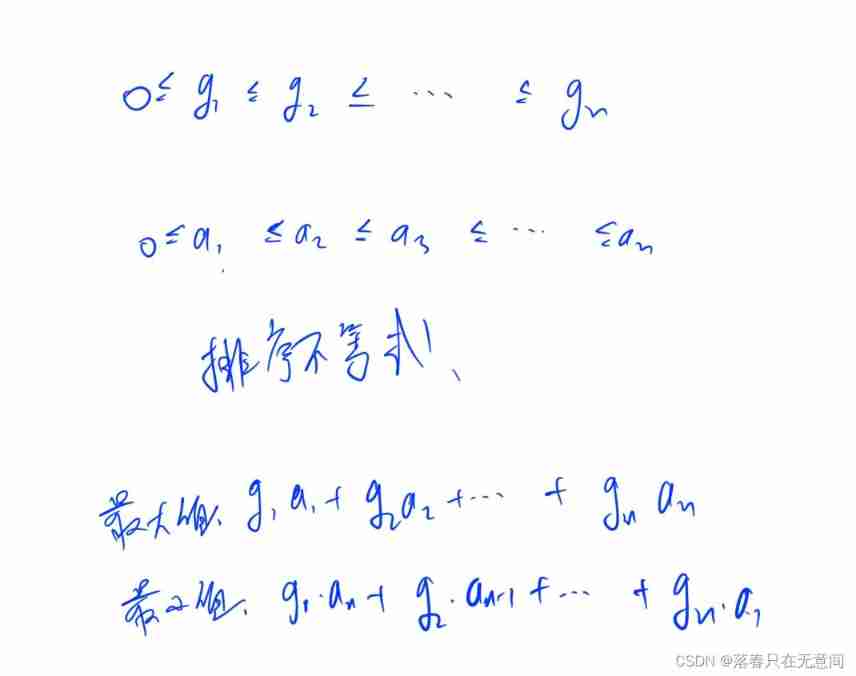 0 ≤ g₁ ≤ g₂ ≤ ... ≤ gₙ
0 ≤ a₁ ≤ a₂ ≤ a₃ ≤ ... ≤ aₙ
排序不等式!、
最大值、g₁a₁ + g₂a₂ + ... + gₙ aₙ
最小值、g₁·aₙ + g₂·aₙ₋₁ + ... + gₙ·a₁
CSDN @落春只在无意间